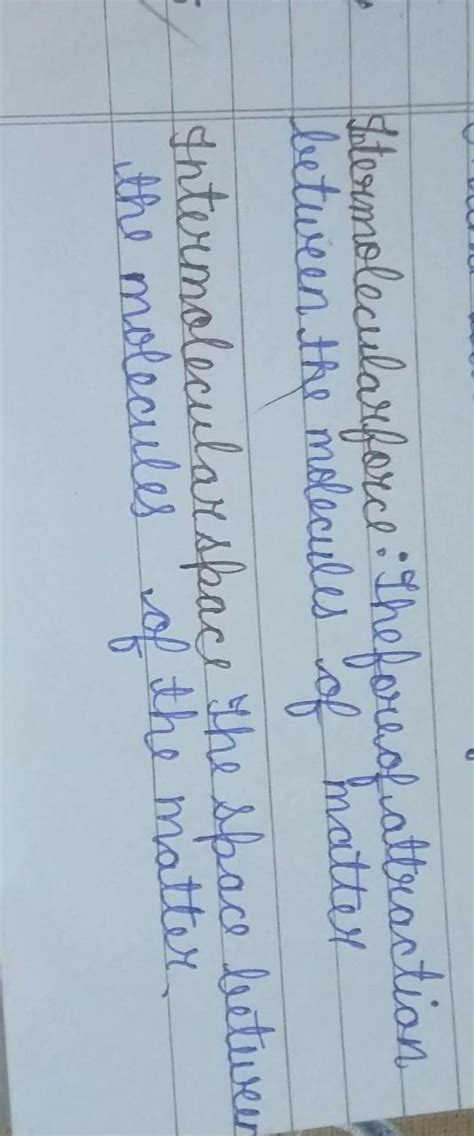 Intermolecularforce: The foreof attraction
between the molecules of matter
Intermolecular space The space between
the molecules of the matter.